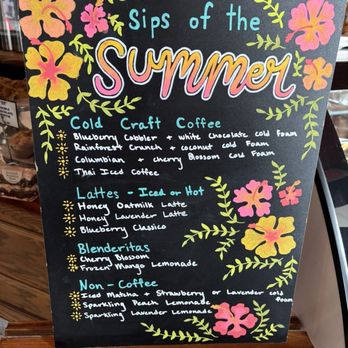 Sips of the
Summer
Cold Craft Coffee
Blueberry Cobbler + white Chocolate cold foam
Rainforest Crunch + coconut cold foam
Columbian + Cherry Blossom cold Foam
Thai Iced Coffee
Lattes - Iced or Hot
Honey Oatmilk Latte
Honey Lavender Latte
Blueberry Classico
Blenderitas
Cherry Blossom
Frozen Mango Lemonade
Non - Coffee
Iced Matcha + Strawberry or Lavender cold
foam
Sparkling Peach Lemonade
Sparkling Lavender Lemonade